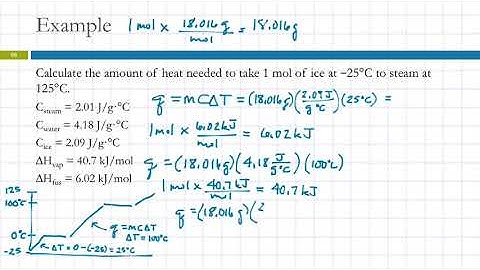 Example
1 mol × 18.016 g / mol = 18.016 g
Calculate the amount of heat needed to take 1 mol of ice at −25°C to steam at
125°C.
C_steam = 2.01 J/g·°C
C_water = 4.18 J/g·°C
C_ice = 2.09 J/g·°C
ΔH_vap = 40.7 kJ/mol
ΔH_fus = 6.02 kJ/mol
q = mCΔT = (18.016g)(2.09 J / g°C)(25°C) =
1 mol × 6.02 kJ / mol = 6.02 kJ
q = (18.016g)(4.18 J / g°C)(100°C)
1 mol × 40.7 kJ / mol = 40.7 kJ
q = (18.016g)(2
125
100°C
0°C
-25
q = mCΔT
ΔT = 100°C
ΔT = 0 - (-25) = 25°C